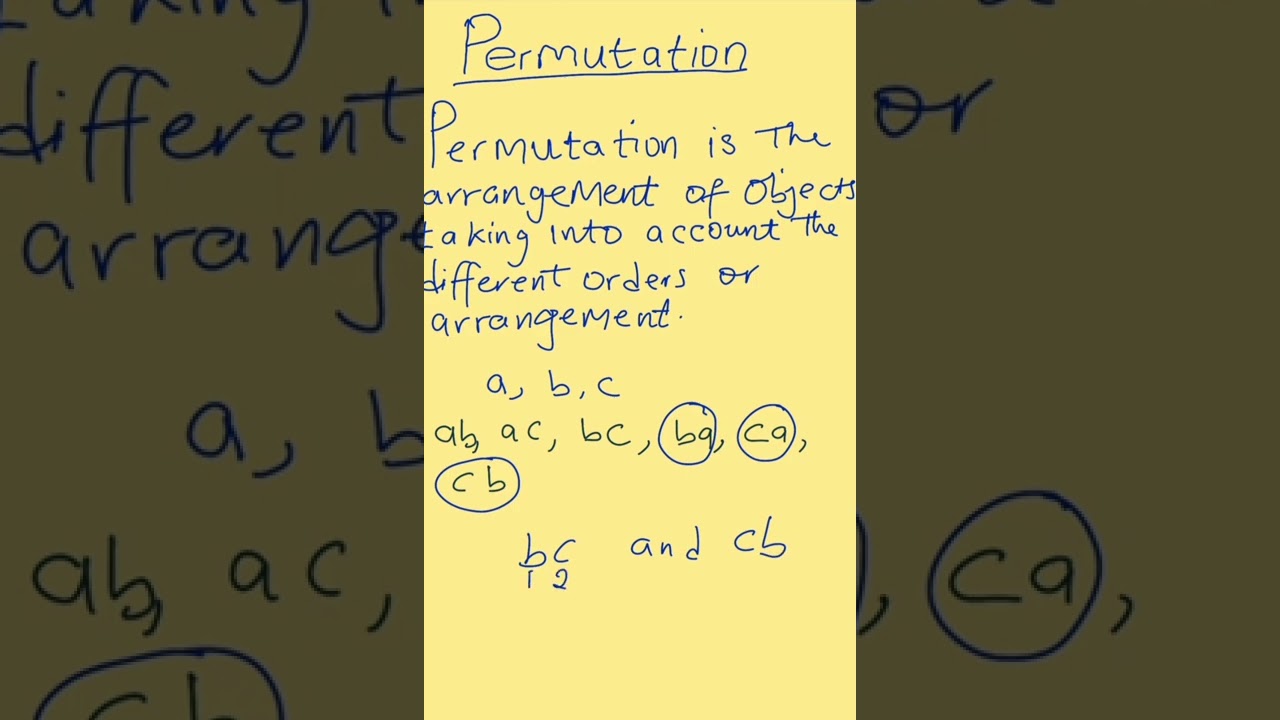 Permutation
Permutation is The
arrangement of objects
taking into account the
different orders or
arrangement.
a, b, c
ab, ac, bc, ba, ca,
cb
bc and cb
1 2